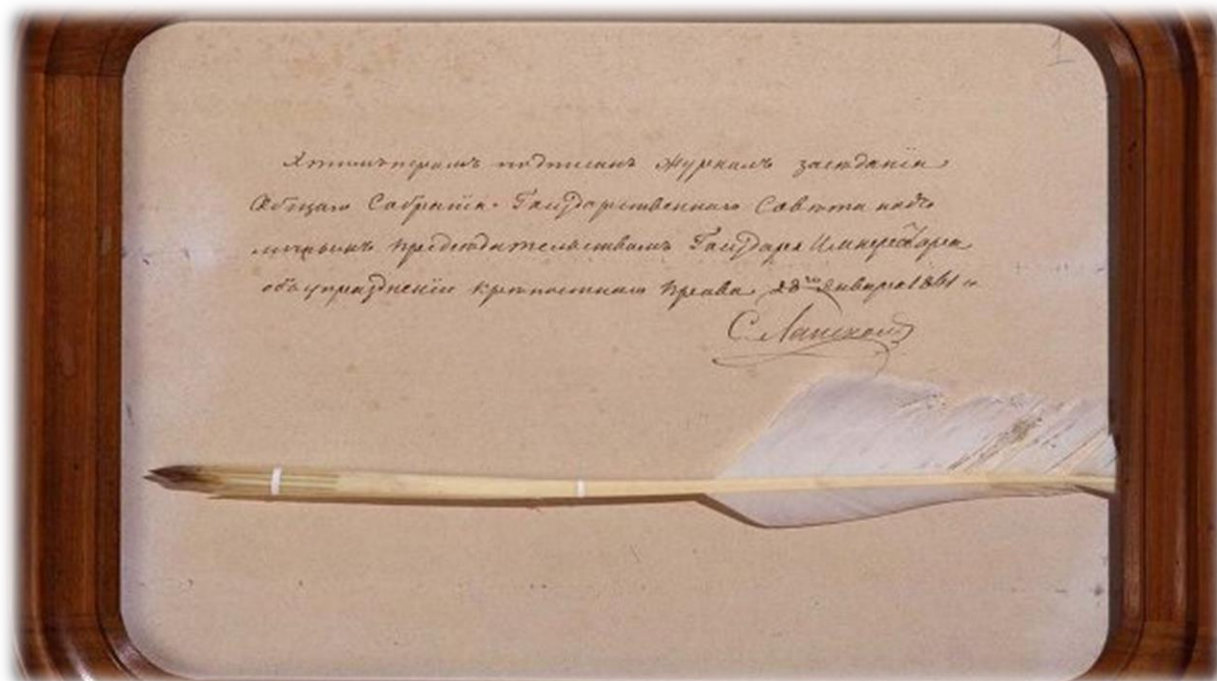 1
Этимъ перомъ подписанъ Журналъ заседанія
Общаго Собранія Государственнаго Совѣта подъ
личнымъ предсѣдательствомъ Государя Императора
объ упраздненіи крѣпостнаго права 28го января 1861 г.
С. Ланской